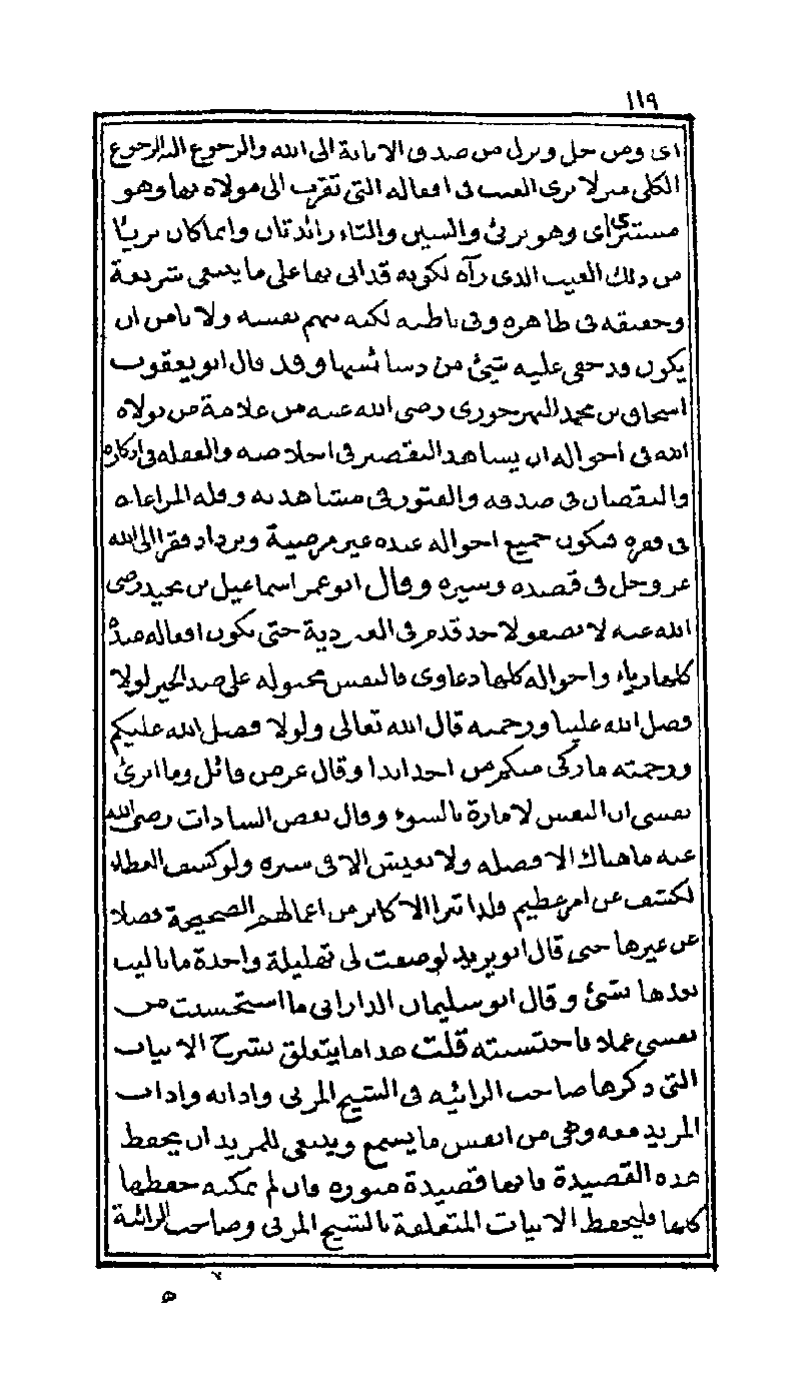 ١١٩
اى ومن حل ونزل من صدق الانابة الى الله والرجوع اليه الرجوع
الكلى منزلا يرى العيب فى افعاله التى تقرب الى مولاه بها وهو
مستبرئ اى وهو برئ والسين والتاء زائدتان وانما كان بريئا
من ذلك العيب الذى رآه لكونه قد اتى بها على ما ينبغى شريعة
وحقيقة فى ظاهره وفى باطنه لكنه يتهم نفسه ولا يأمن ان
يكون قد خفى عليه شئ من دسائسها وقد قال ابو يعقوب
اسحاق بن محمد النهرجورى رضى الله عنه من علامة من تولاه
الله فى احواله ان يشاهد التقصير فى اخلاصه والغفلة فى اذكاره
والنقصان فى صدقه والفتور فى مشاهدته وقلة المراعات
فى فقره فتكون جميع احواله عنده غير مرضية ويزداد فقرا الى الله
عز وجل فى قصده وسيره وقال ابو عمر اسماعيل بن نجيد رضى
الله عنه لا تصفو لاحد قدم فى العبودية حتى تكون افعاله عنده
كلها رياء واحواله كلها دعاوى فالنفس مجبولة على ضد الخير لولا
فضل الله علينا ورحمته قال الله تعالى ولولا فضل الله عليكم
ورحمته ما زكى منكم من احد ابدا وقال عز من قائل وما ابرئ
نفسى ان النفس لامارة بالسوء وقال بعض السادات رضى الله
عنه ما هناك الا فضله ولا نعيش الا فى ستره ولو كشف الغطاء
لكشف عن امر عظيم ولذا تبرا الاكابر من اعمالهم الصحيحة فضلا
عن غيرها حتى قال ابو يزيد لو صفت لى تهليلة واحدة ما باليت
بعدها بشئ وقال ابو سليمان الدارانى ما استحسنت من
نفسى عملا فاحتسبته قلت هذا ما يتعلق بشرح الابيات
التى ذكرها صاحب الرائية فى الشيخ المربى وادابه واداب
المريد معه وهى من انفس ما يسمع وينبغى للمريد ان يحفظ
هذه القصيدة فانها قصيدة منورة فان لم يمكنه حفظها
كلها فليحفظ الابيات المتعلقة بالشيخ المربى وصاحب الرائية